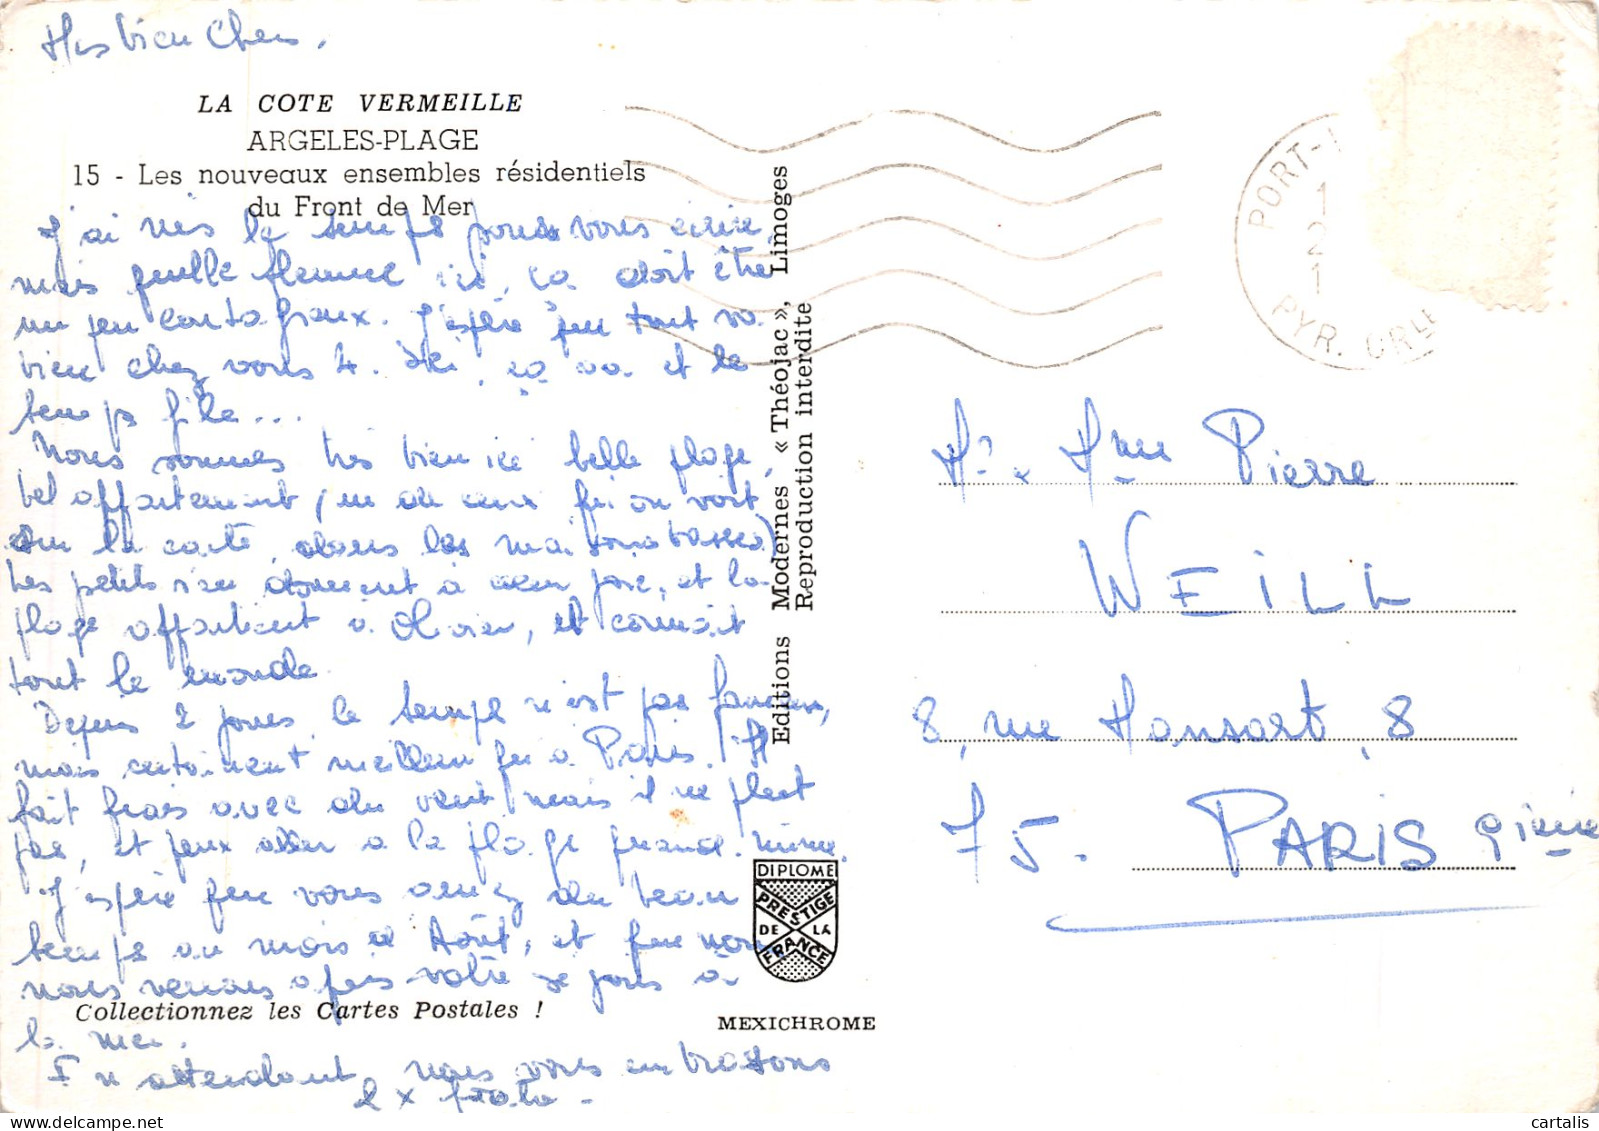 Mes bien Chers,
LA COTE VERMEILLE
ARGELES-PLAGE
15 - Les nouveaux ensembles résidentiels
du Front de Mer
J'ai mis le temps pour vous écrire,
mais quelle flemme ici, ça doit être
un peu contagieux. J'espère que tout va
bien chez vous 4. Ici, ça va et le
temps file...
Nous sommes très bien ici belle plage,
bel appartement (un de ceux qui on voit
sur la carte, dans les maisons basses)
Les petits s'en donnent à coeur joie, et la
plage appartient à Olivier, et connait
tout le monde.
Depuis 2 jours le temps n'est pas fameux,
mais certainement meilleur qu'à Paris. Il
fait frais avec du vent, mais il ne pleut
pas, et peux aller à la plage quand même.
J'espère que vous aurez du beau
temps au mois d'Août, et que nous
nous verrons après votre séjour à
Collectionnez les Cartes Postales !
la mer.
En attendant, nous vous embrassons
Editions Modernes « Théojac », Limoges
Reproduction interdite
DIPLOME
PRESTIGE
DE LA
FRANCE
MEXICHROME
PORT-
PYR. ORLE
Mr x Mme Pierre
WEILL
8, rue Mansart, 8
75. PARIS 9ième
cartalis